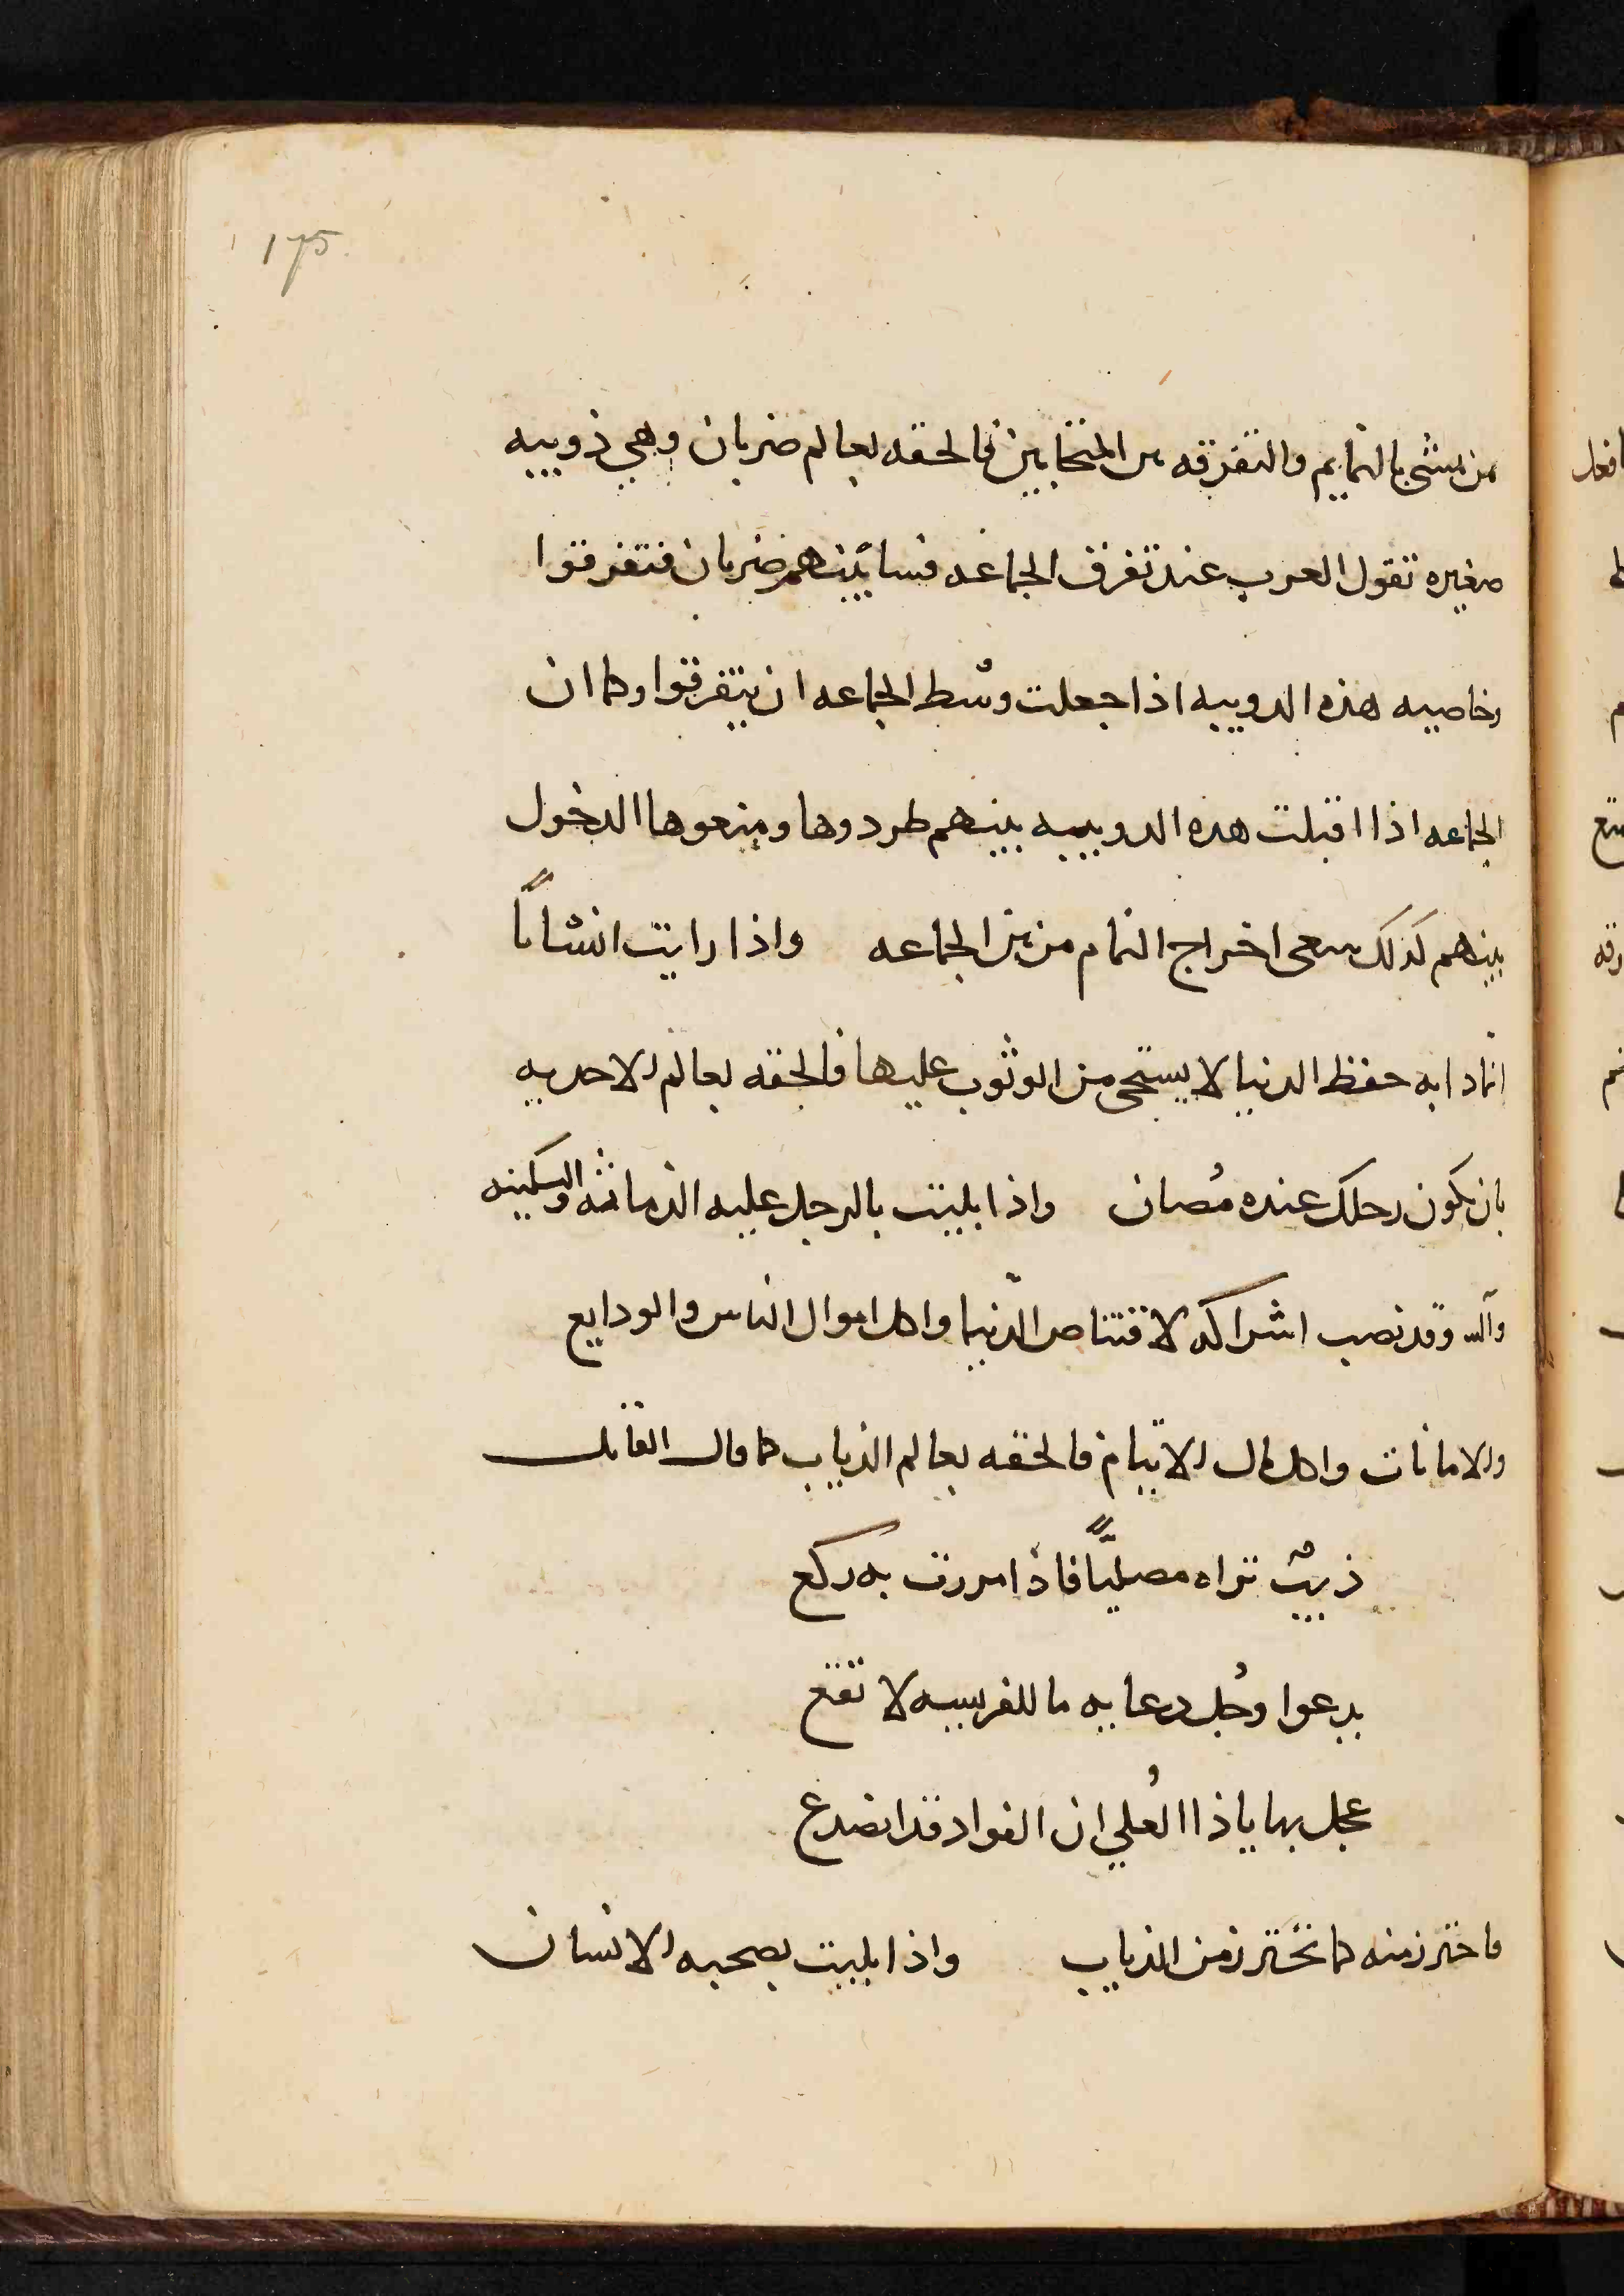 175
من يمشي بالنمايم والتفرقه بين المتحابين فالحقه بعالم ضربان وهي ذويبه
صغيره تقول العرب عند تفرق الجماعه فسا بينهم ضربان فتفرقوا
وخاصيه هذه الدويبه اذا جعلت وسط الجماعه ان يتفرقوا وكما ان
الجماعه اذا اقبلت هده الدويبه بينهم طردوها ومنعوها الدخول
بينهم كذلك سعى اخراج النمام من بين الجماعه واذا رايت انسانا
انما دابه حفظ الدنيا لا يستحي من الوثوب عليها فالحقه بعالم الاحديه
بان يكون رحلك عنده مُصان واذا بليت بالرجل عليه الدماثه والسكينه
وقد نصب اشراكه لاقتناص الدنيا واكل اموال الناس والودايع
والامانات واكل مال الايتام فالحقه بعالم الذياب كما قال القايل
ذيبٌ تراه مصلياً فاذا مررت به ركع
يدعوا وجُل دعايه ما للفريسه لا تقع
عجل بها ياذا العُلي ان الفواد قد انصدع
فاحترز منه كما تحترز من الذياب واذا بليت بصحبه الانسان